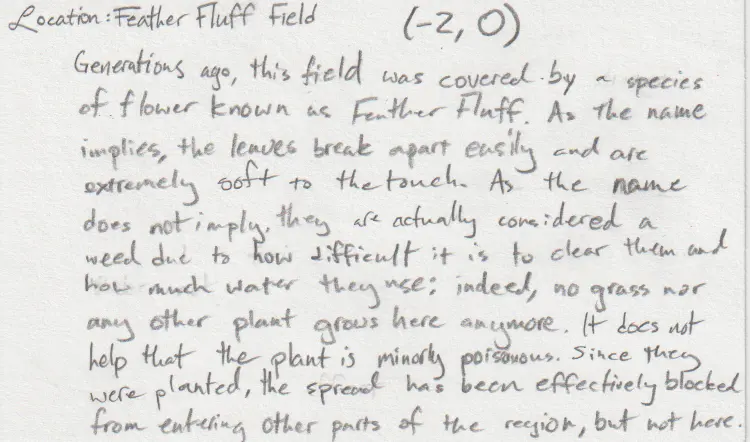 Location: Feather Fluff Field (-2, 0)
Generations ago, this field was covered by a species
of flower known as Feather Fluff. As the name
implies, the leaves break apart easily and are
extremely soft to the touch. As the name
does not imply, they are actually considered a
weed due to how difficult it is to clear them and
how much water they use; indeed, no grass nor
any other plant grows here anymore. It does not
help that the plant is minorly poisonous. Since they
were planted, the spread has been effectively blocked
from entering other parts of the region, but not here.